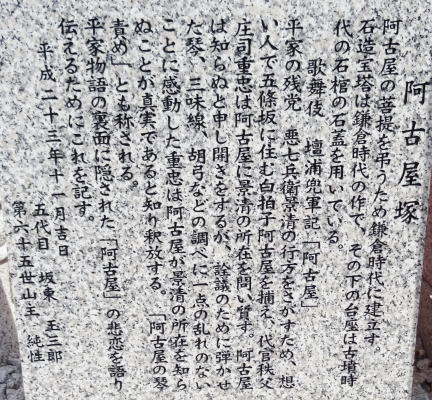 阿古屋塚
阿古屋の菩提を弔うため鎌倉時代に建立す。
石造宝塔は鎌倉時代の作で、その下の台座は古墳時
代の石棺の石蓋を用いている。
歌舞伎 壇浦兜軍記「阿古屋」
平家の残党 悪七兵衛景清の行方をさがすため、想
い人で五條坂に住む白拍子阿古屋を捕え、代官秩父
庄司重忠は阿古屋に景清の所在を問い質す。阿古屋
は知らぬと申し開きをするが、詮議のために弾かせ
た琴、三味線、胡弓などの調べに一点の乱れのない
ことに感動した重忠は阿古屋が景清の所在を知ら
ぬことが真実であると知り釈放する。「阿古屋の琴
責め」とも称される。
平家物語の裏面に隠された「阿古屋」の悲恋を語り
伝えるためにこれを記す。
平成二十三年十一月吉日
五代目 坂東 玉三郎
第六十五世山主 純性